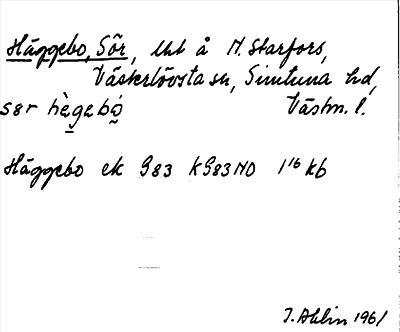 Häggebo, Sör, lht å N. Starfors,
Västerlövsta sn, Simtuna hd,
sør hègebó̰ Västm. l.
Häggebo ek G83 KG83NO 1¹⁶ kb
J. Ahlin 1961